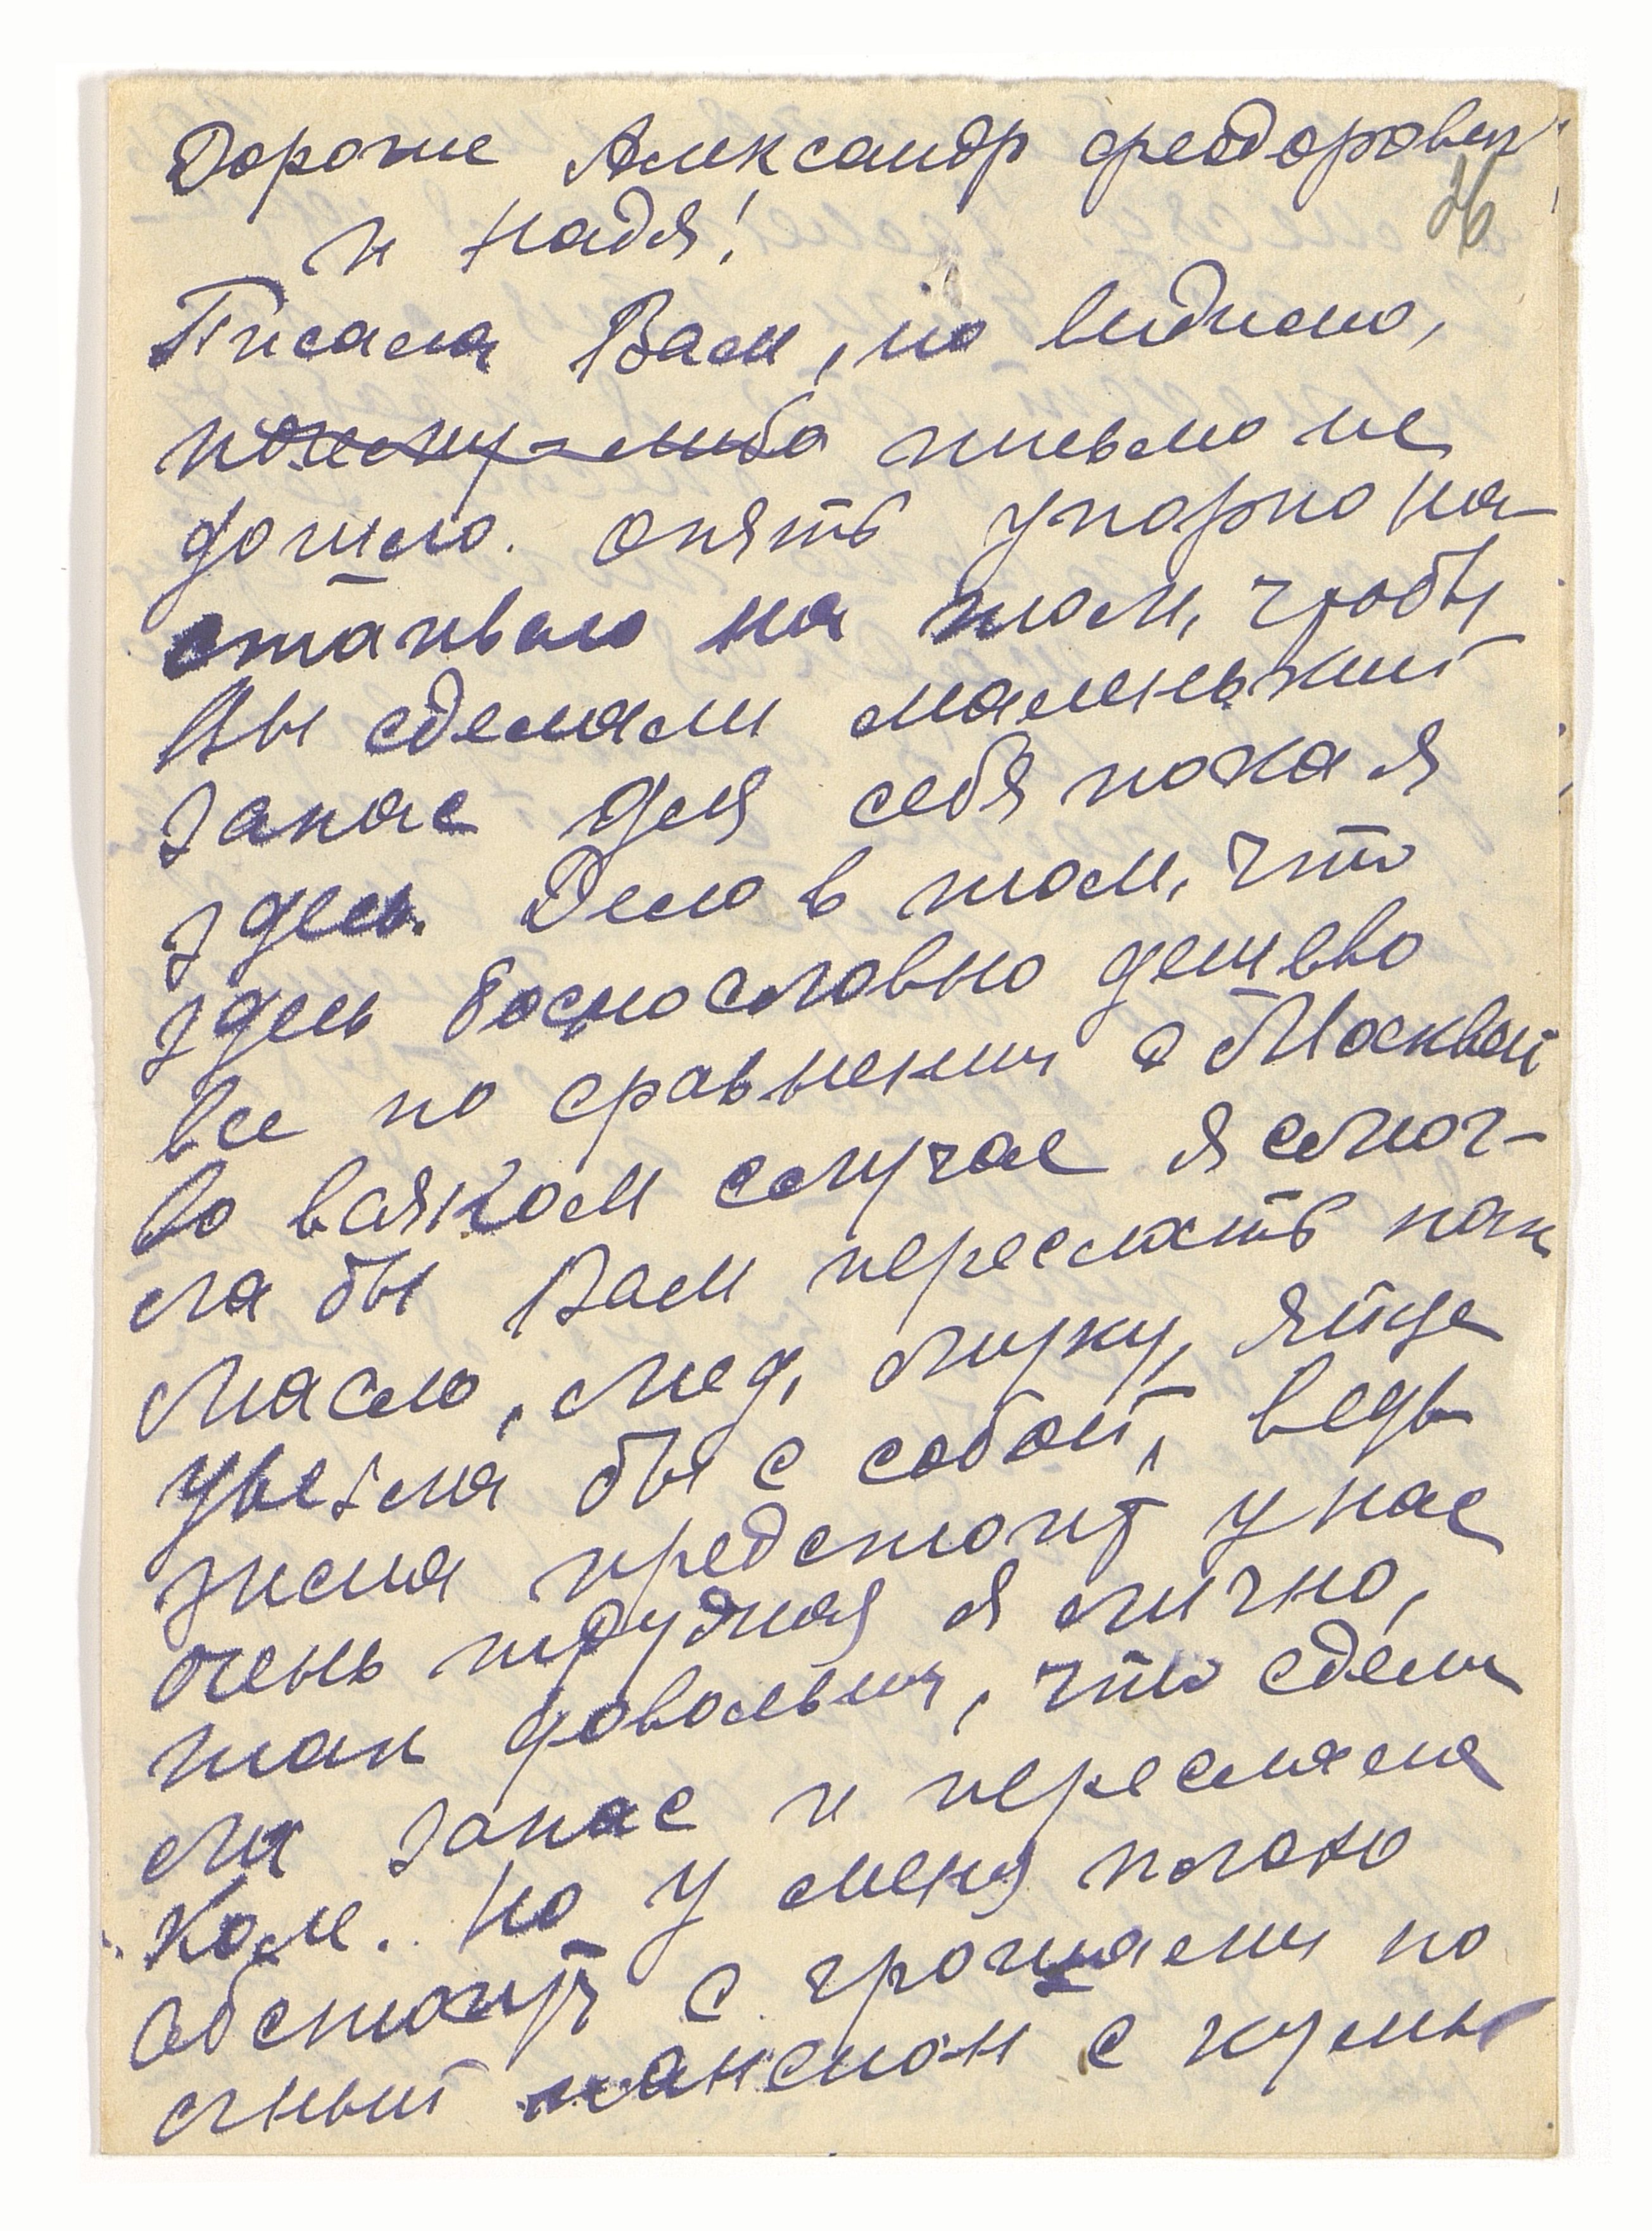 Дорогие Александр Феодорович
26
и Надя!
Писала Вам, но видимо,
почему-либо письмо не
дошло. Опять упорно на-
стаиваю на том, чтобы
Вы сделали маленький
запас для себя пока я
здесь. Дело в том, что
здесь баснословно дешево
все по сравнении с Москвой
Во всяком случае я смог-
ла бы Вам переслать как
масло, мед, муку, яйце
увезла бы с собой, ведь
зима предстоит у нас
очень трудная я лично,
так довольна, что сдела
ла запас и переслала
Коле. Но у меня плохо
обстоит с грошами по
лный пансион с кумы